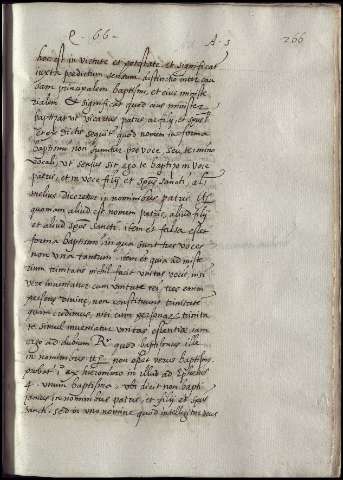 Q. 66. A. 5 266
hoc est in virtute et potestate, et significat
iuxta predictum sensum distinctio inter cau
sam principalem baptismi, et eius ministe
rialem. Et significat quod eius minister
baptizat ut vicarius patris et filij et spūs sti
et ex dictis sequit quod nomen in forma
baptismi non sumitur pro voce seu termino
vocali, ut sensus sit ego te baptizo in voce
patris, et in voce filij et spūs sancti, ali
melius diceretur in nominibus patris
quoniam aliud est nomen patris, aliud filij
et aliud spūs sancti. item et falsa esset
forma baptismi, in qua sunt tres voces
non una tantum. item et quia ad miste
rium trinitatis nihil facit unitas vocis, nisi
vere inveniatur cum unitate rei, tres enim
persone divine, non constituunt trinitate
quam credimus, nisi cum personar trinita
te simul inveniatur unitas essentiae. iam
ergo ad dubium Rr quod baptismus ille
in nominibus non esset verus baptism.
probat ex hieronimo in illud ad Ephesios
4. unum baptisma. ubi dicit non bapti
zamus in nominibus patris, et filij et spūs
sancti. sed in uno nomine quod intelligitur deus